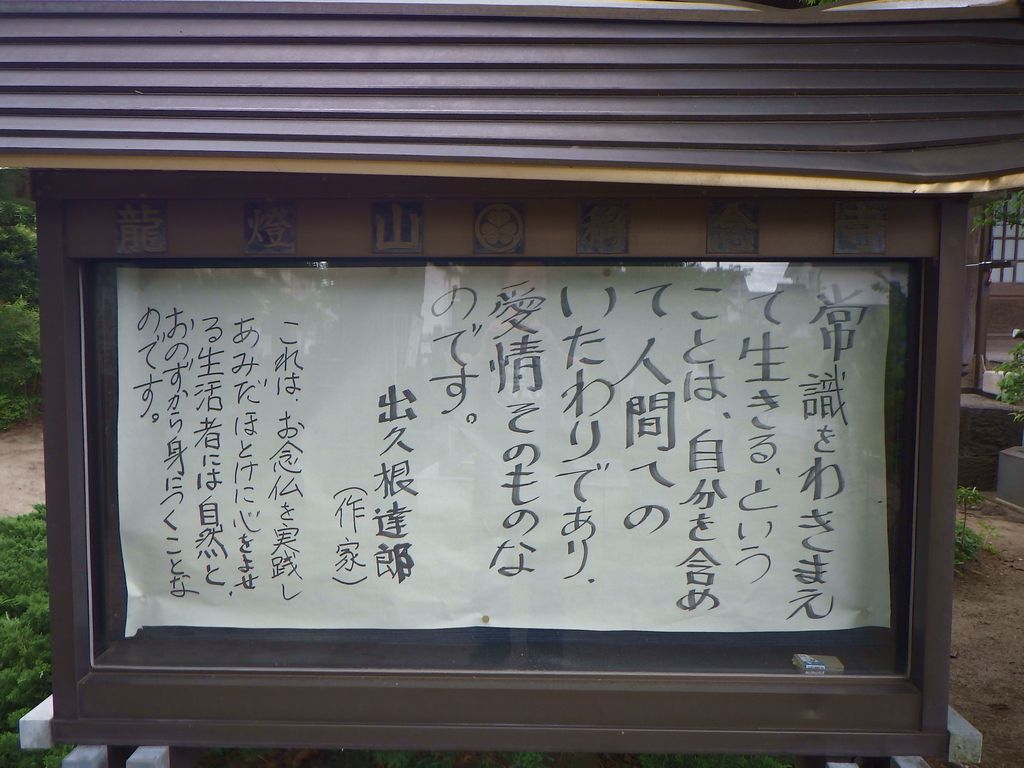 龍燈山 称念寺
常識をわきまえ
て生きる、という
ことは、自分を含め
て人間への
いたわりであり、
愛情そのものな
のです。
出久根達郎
（作家）
これは、お念仏を実践し
あみだほとけに心をよせ、
る生活者には自然と、
おのずから身につくことな
のです。